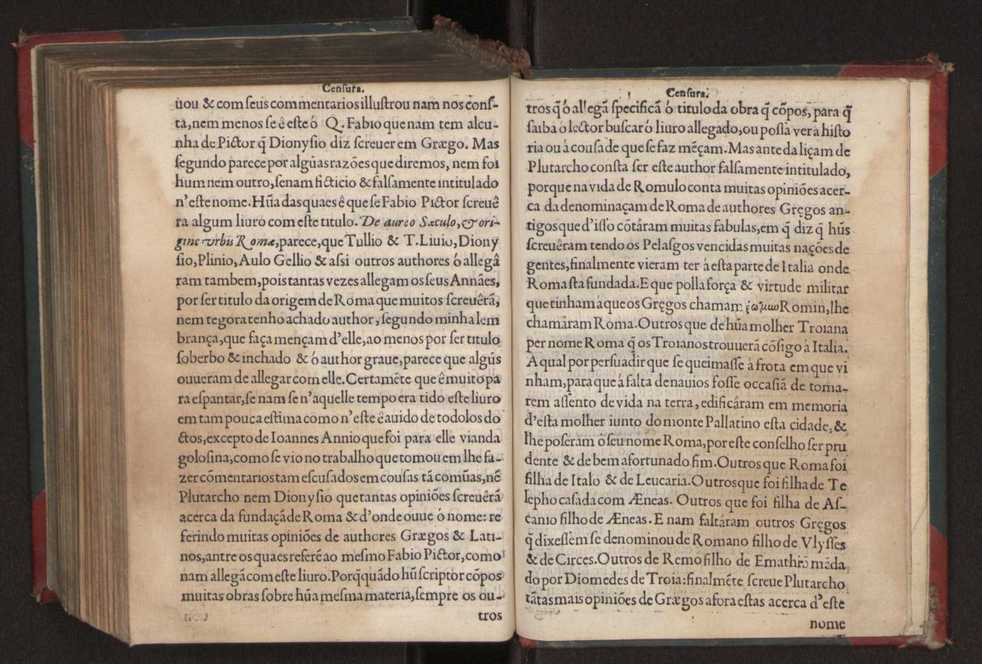 Censura.
uou & com seus commentarios illustrou nam nos cons-
ta, nem menos se ê este ô Q. Fabio que nam tem alcu-
nha de Pictor q̃ Dionysio diz screuer em Græego. Mas
segundo parece por algũas razões que diremos, nem foi
hum nem outro, senam ficticio & falsamente intitulado
n'este nome. Hũa das quaes ê que se Fabio Pictor screuê
ra algum liuro com este titulo. De aureo Sæculo, & ori-
gine vrbis Romæ, parece, que Tullio & T. Liuio, Diony
sio, Plinio, Aulo Gellio & assi outros authores ô allegâ
ram tambem, pois tantas vezes allegam os seus Annães,
por ser titulo da origem de Roma que muitos screuerã,
nem tegora tenho achado author, segundo minha lem
brança, que faça mençam d'elle, ao menos por ser titulo
soberbo & inchado & ô author graue, parece que algũs
ouueram de allegar com elle. Certamẽte que ê muito pa
ra espantar, se nam se n'aquelle tempo era tido este liuro
em tam pouca estima como n'este ê auido de todolos do
ctos, excepto de Ioannes Annio que foi para elle vianda
golosina, como se vio no trabalho que tomou em lhe fa-
zer cõmentarios tam escusados em cousas tã comũas, nẽ
Plutarcho nem Dionysio que tantas opiniões screuerã
acerca da fundaçã de Roma & d'onde ouue ô nome: re
ferindo muitas opiniões de authores Græegos & Lati-
nos, antre os quaes referẽ ao mesmo Fabio Pictor, como
nam allegã com este liuro. Porq̃ quãdo hũ scriptor cõpos
muitas obras sobre hũa mesma materia, sempre os ou-
tros
Censura.
tros q̃ ô allegã specificã ô titulo da obra q̃ cõpos, para q̃
saiba o lector buscar ô liuro allegado, ou possa ver a histo
ria ou â cousa de que se faz mẽçam. Mas ante da liçam de
Plutarcho consta ser este author falsamente intitulado,
porque na vida de Romulo conta muitas opiniões acer-
ca da denominaçam de Roma de authores Gręgos an-
tigos que d'isso cõtáram muitas fabulas, em q̃ diz q̃ hũs
screuêram tendo os Pelasgos vencidas muitas nações de
gentes, finalmente vieram ter â esta parte de Italia onde
Roma sta fundada. E que polla força & virtude militar
que tinham â que os Gręgos chamam: ῥώμων Romin, lhe
chamâram Roma. Outros que de hũa molher Troiana
per nome Roma q̃ os Troianos trouuerã cõsigo â Italia.
A qual por persuadir que se queimasse â frota em que vi
nham, para que â falta de nauios fosse occasiã de toma-
rem assento de vida na terra, edificâram em memoria
d'esta molher iunto do monte Pallatino esta cidade, &
lhe poseram ô seu nome Roma, por este conselho ser pru
dente & de bem afortunado fim. Outros que Roma foi
filha de Italo & de Leucaria. Outros que foi filha de Te
lepho casada com Æneas. Outros que foi filha de As-
canio filho de Æneas. E nam faltâram outros Gręgos
q̃ dixessẽm se denominou de Romano filho de Vlysses
& de Circes. Outros de Remo filho de Emathrõ mãda,
do por Diomedes de Troia: finalmẽte screue Plutarcho
tãtas mais opiniões de Græegos afora estas acerca d'este
nome